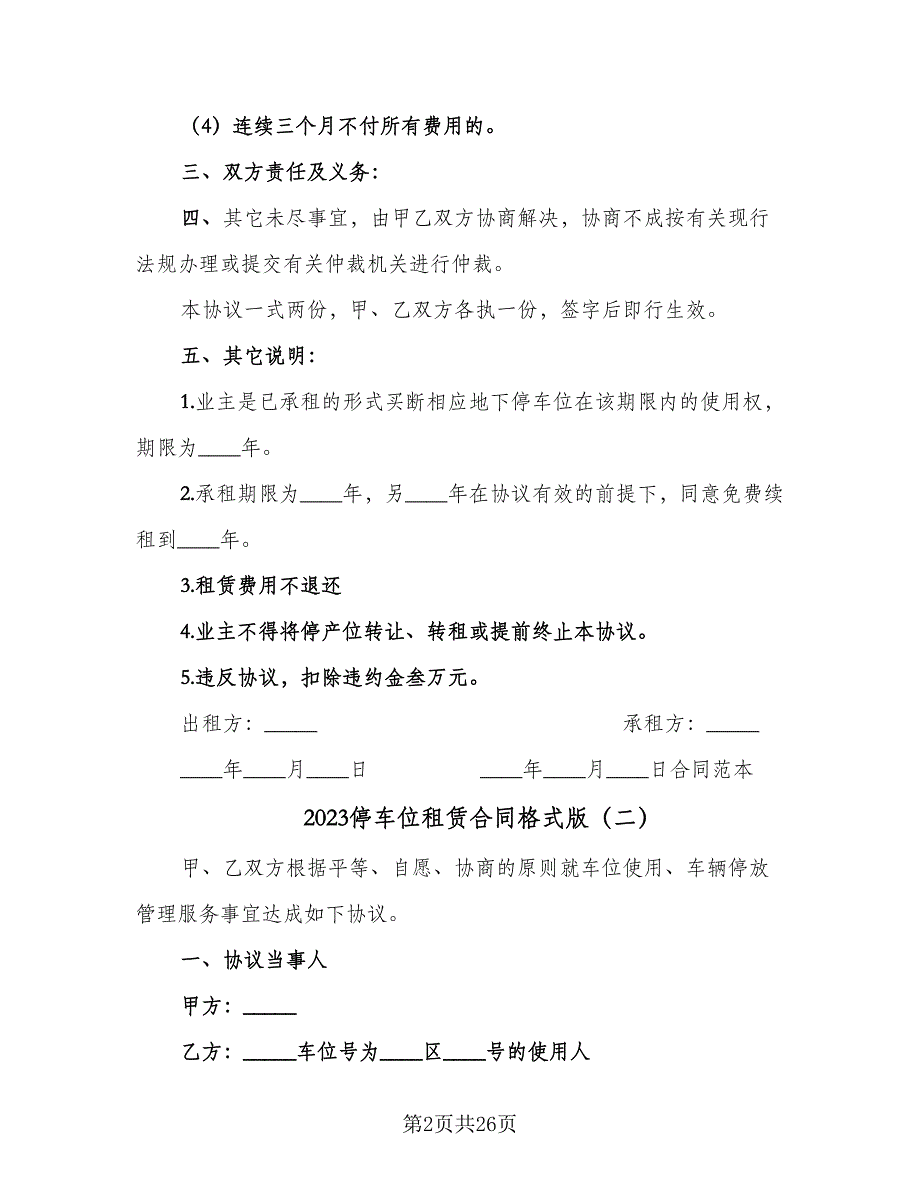 （4）连续三个月不付所有费用的。
三、双方责任及义务：
四、其它未尽事宜，由甲乙双方协商解决，协商不成按有关现行
法规办理或提交有关仲裁机关进行仲裁。
本协议一式两份，甲、乙双方各执一份，签字后即行生效。
五、其它说明：
1.业主是已承租的形式买断相应地下停车位在该期限内的使用权，
期限为____年。
2.承租期限为____年，另____年在协议有效的前提下，同意免费续
租到____年。
3.租赁费用不退还
4.业主不得将停产位转让、转租或提前终止本协议。
5.违反协议，扣除违约金叁万元。
出租方：_____ 承租方：_____
____年____月____日 ____年____月____日合同范本
2023停车位租赁合同格式版（二）
甲、乙双方根据平等、自愿、协商的原则就车位使用、车辆停放
管理服务事宜达成如下协议。
一、协议当事人
甲方：_____
乙方：_____车位号为____区____号的使用人
第2页共26页